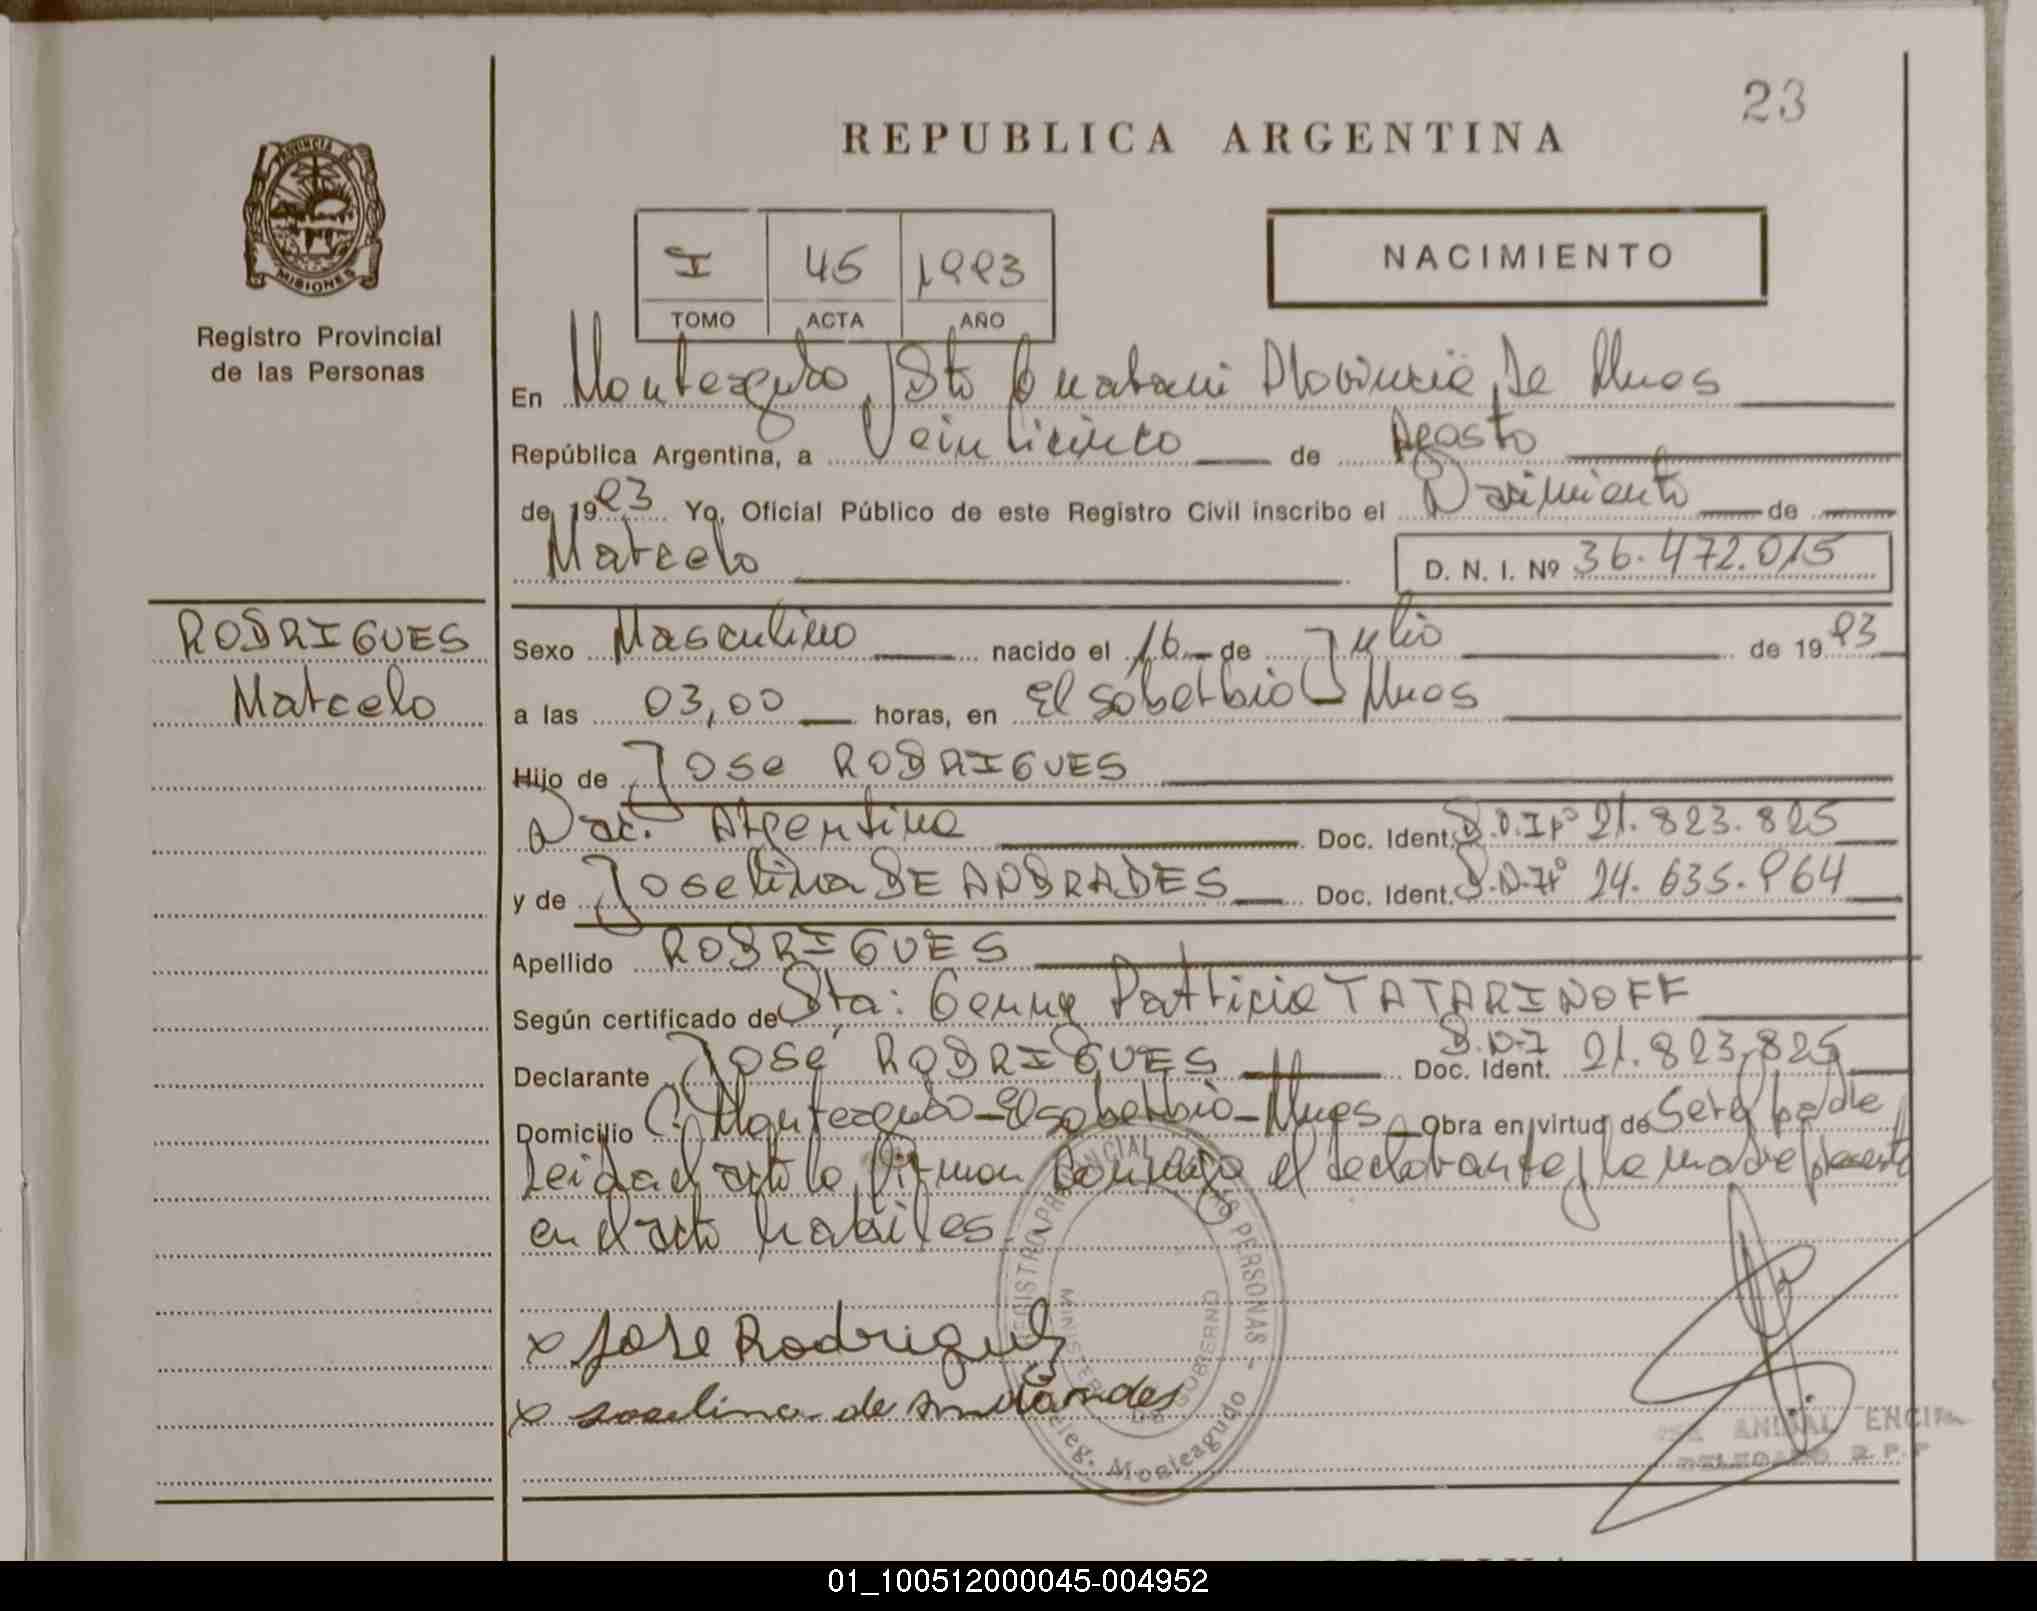 23
REPUBLICA ARGENTINA
PROVINCIA DE
MISIONES
Registro Provincial
de las Personas
I 45 1993
TOMO ACTA AÑO
NACIMIENTO
En Monteagudo, Dto Guarani Provincia De Mnes
República Argentina, a Veinticinco de Agosto
de 1993 Yo, Oficial Público de este Registro Civil inscribo el Nacimiento de
Marcelo D. N. I. Nº 36.472.015
RODRIGUES
Marcelo
Sexo Masculino nacido el 16 de Julio de 1993
a las 03,00 horas, en El Soberbio Mnes
Hijo de Jose RODRIGUES
Nac. Argentina Doc. Ident. D.N.I Nº 21.823.825
y de Joselina DE ANDRADES Doc. Ident. D.N.I Nº 24.635.964
Apellido RODRIGUES
Según certificado de Sta: Genny Patricia TATARINOFF
Declarante José RODRIGUES Doc. Ident. D.N.I 21.823.825
Domicilio C. Monteagudo - El soberbio - Mnes Obra en virtud de Ser el padre
Leida el acta la firman conmigo el declarante y la madre presente
en el acto habiles
REGISTRO PROVINCIAL DE LAS PERSONAS -
MINISTERIO DE GOBIERNO
Deleg. Monteagudo
x Jose Rodrigues
x Joselina de Andrades
ANIBAL ENCINA
DELEGADO R.P.P
01_100512000045-004952